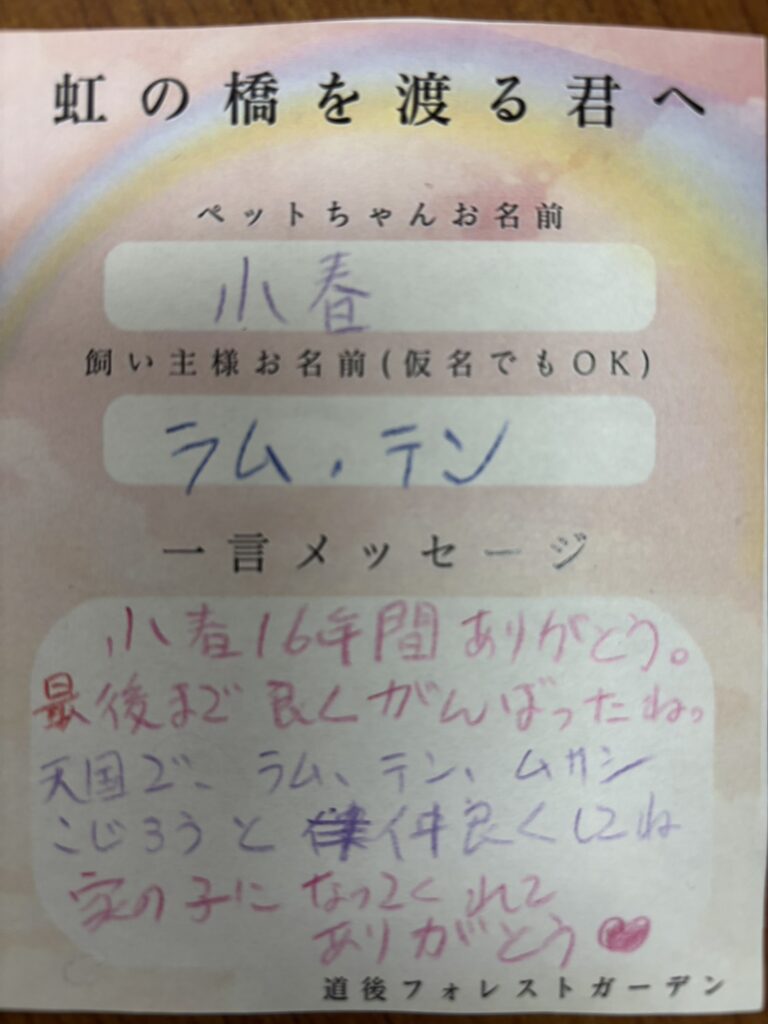 虹の橋を渡る君へ
ペットちゃんお名前
小春
飼い主様お名前(仮名でもOK)
ラム、テン
一言メッセージ
小春16年間ありがとう。
最後まで良くがんばったね。
天国で、ラム、テン、ムサシ
こじろうと仲良くしてね
家の子になってくれて
ありがとう
道後フォレストガーデン